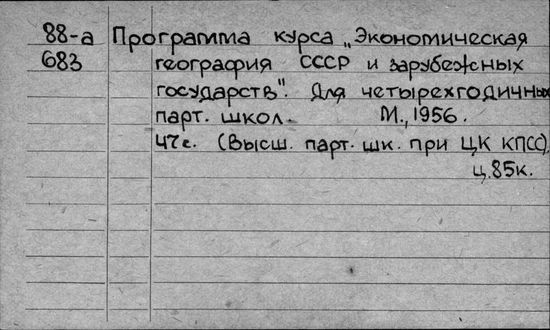 88-а Программа курса „Экономическая
683 география СССР и зарубежных
государств". Для четырехгодичных
парт. школ. М., 1956.
47с. (Высш. парт. шк. при ЦК КПСС).
ц.85к.